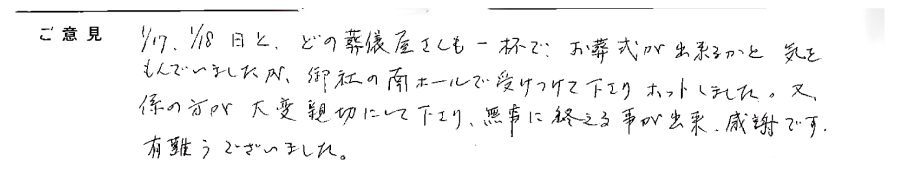 ご意見
1/17、1/18日と、どの葬儀屋さんも一杯で、お葬式が出来るかと気を
もんでいましたが、御社の南ホールで受けつけて下さりホットしました。又、
係の方が大変親切にして下さり、無事に終える事が出来、感謝です。
有難うございました。